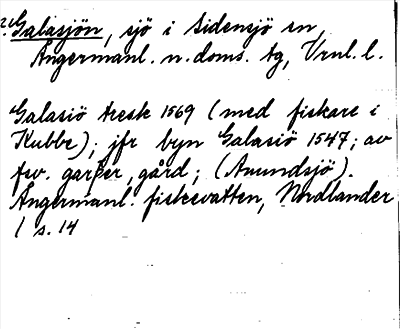 2. Galasjön, sjö i Sidensjö sn
Ångermanl. n. doms. tg, Vrnl. l.
Galasiö tresk 1569 (med fiskare i
Kubbe); jfr byn Galasiö 1547; av
fsv. garþer, gård; (Anundsjö).
Ångermanl. fiskevatten, Nordlander
1 s. 14